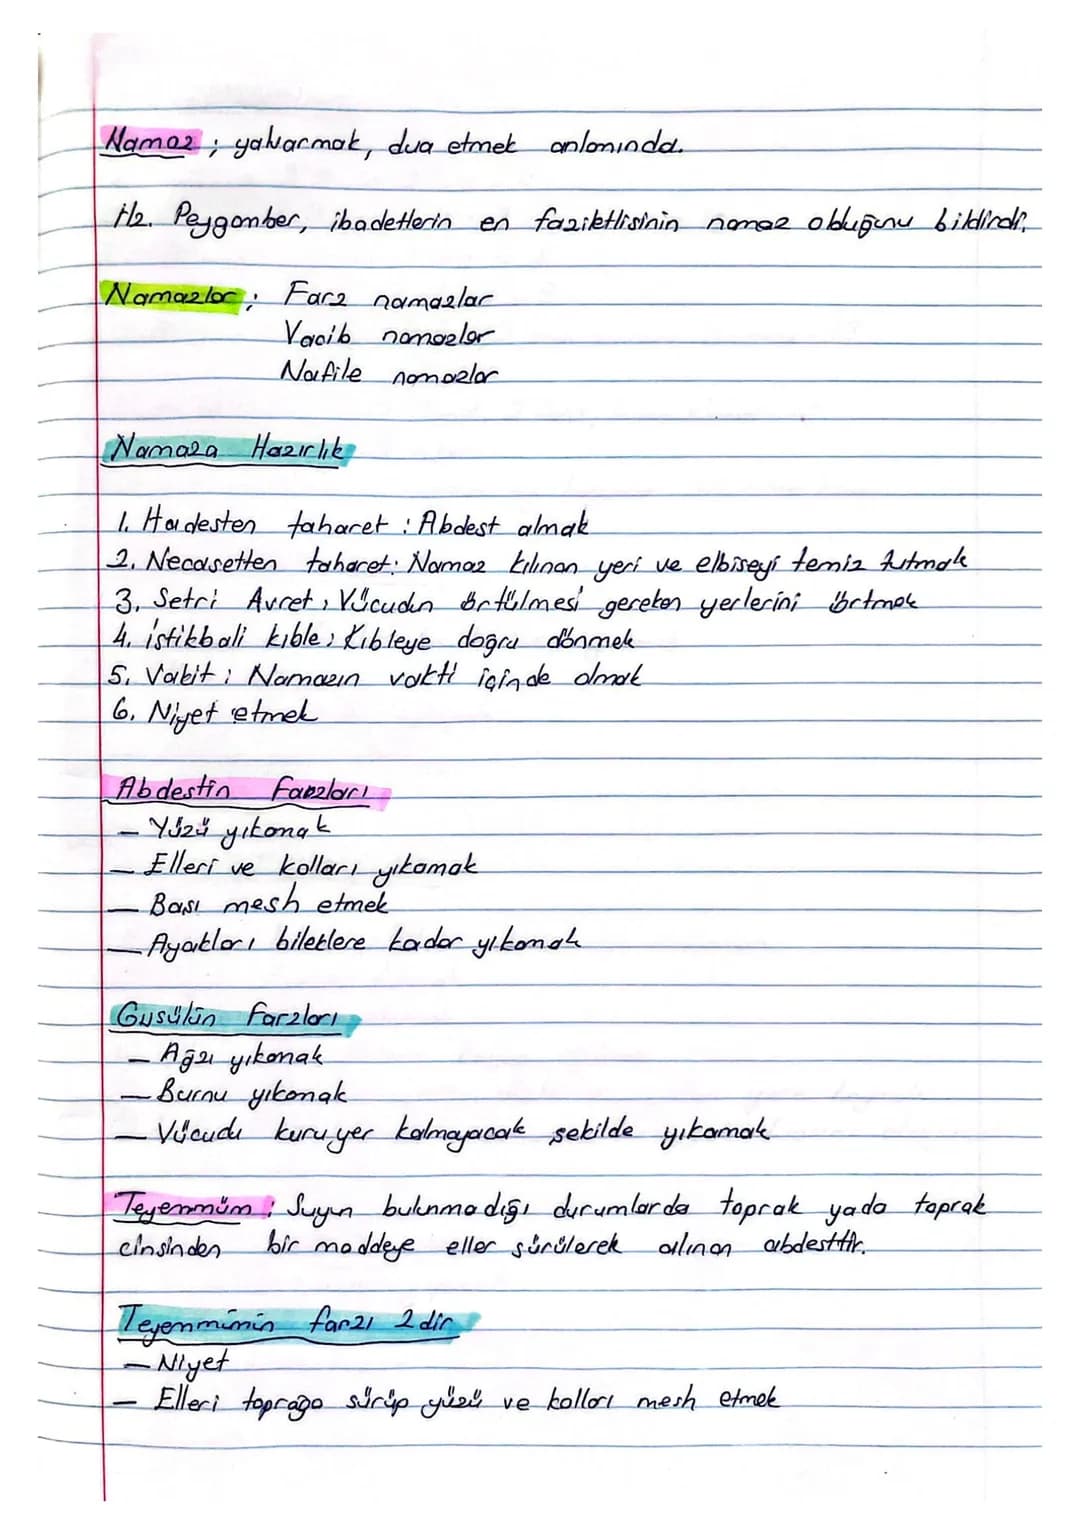 Namaz ; yakarmak, dua etmek anlamında.
Hz. Peygamber, ibadetlerin en faziletlisinin namaz olduğunu bildirdi.
Namazlar ; Farz namazlar
Vacib namazlar
Nafile namazlar
Namaza Hazırlık
1. Hadesten taharet : Abdest almak
2. Necasetten taharet: Namaz kılınan yeri ve elbiseyi temiz tutmak
3. Setri Avret ; Vücudun örtülmesi gereken yerlerini örtmek
4. istikbali kıble ; Kıbleye doğru dönmek
5. Vakit ; Namazın vakti içinde olmak
6. Niyet etmek
Abdestin Farzları
- Yüzü yıkamak
- Elleri ve kolları yıkamak
- Başı mesh etmek
- Ayakları bileklere kadar yıkamak
Gusülün Farzları
- Ağzı yıkamak
- Burnu yıkamak
- Vücudu kuru yer kalmayacak şekilde yıkamak
Teyemmüm ; Suyun bulunmadığı durumlarda toprak yada toprak
cinsinden bir maddeye eller sürülerek alınan abdesttir.
Teyemmümin farzı 2 dir
- Niyet
- Elleri toprağa sürüp yüzü ve kolları mesh etmek